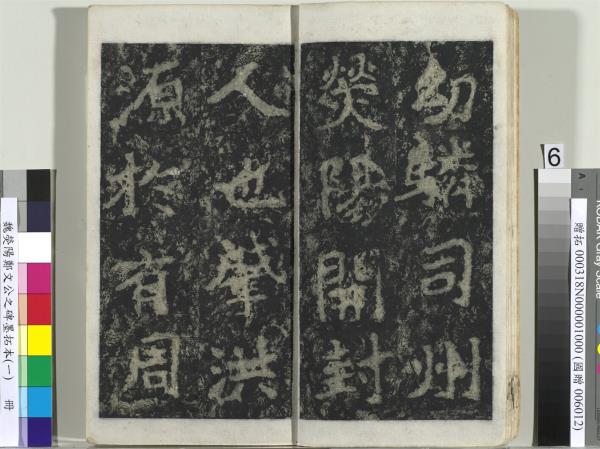 幼驎司州
熒陽開封
人也肇洪
源於有周
6
KODAK Gray Scale
贈拓 000318N000001000 (國贈 006012)
魏熒陽鄭文公之碑墨拓本(一) 冊